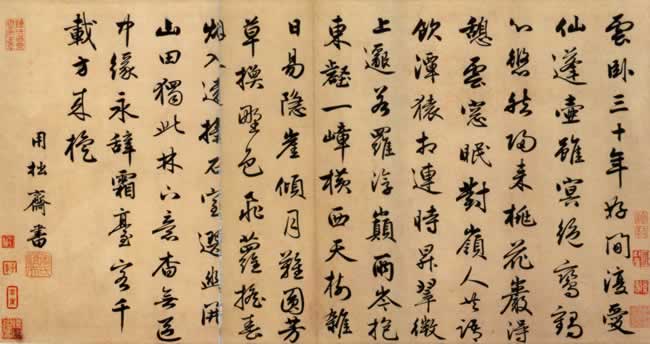 雲卧三十年好間復愛
仙蓬壺雖冥絕鸞鶴
心悠然歸来桃花巖得
憩雲窓眠對嶺人共語
飲潭猿相連時昇翠微
上邈若羅浮巔兩岑抱
東壑一嶂橫西天樹雜
日易隐崖傾月難圓芳
草換野色飛蘿搖春
烟入遠搆石室選幽開
山田獨此林下意杳無區
中緣永辞霜臺客千
載方来旋
用拙齋書